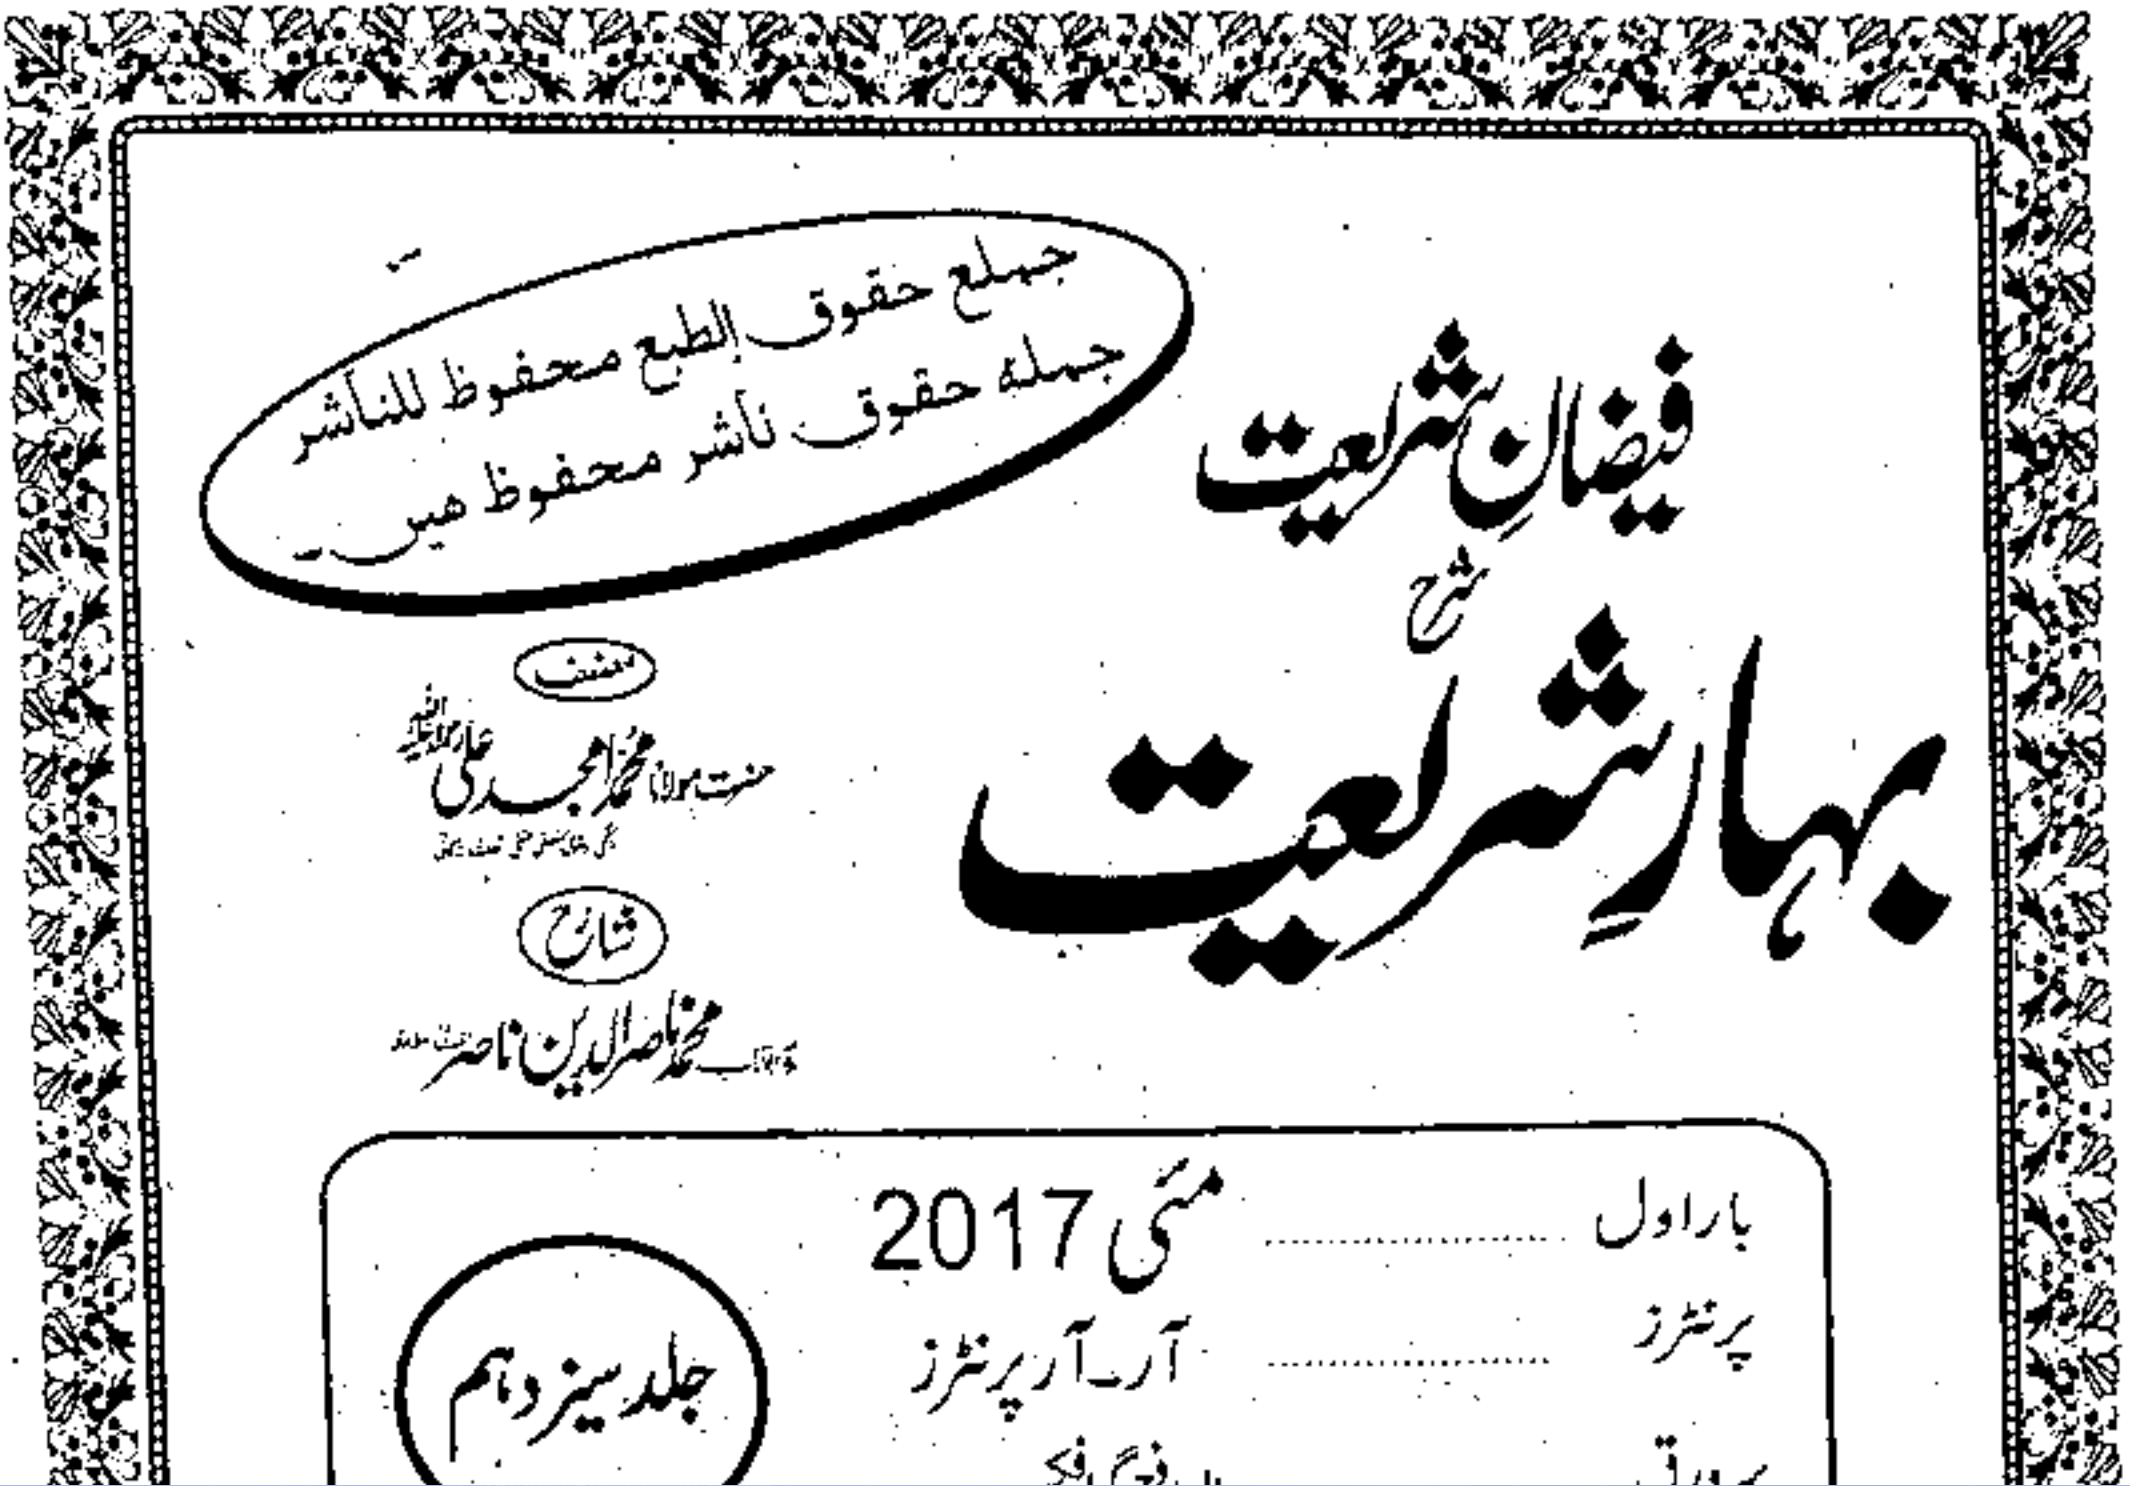 جملع حقوق الطبع محفوظ للناشر
جملہ حقوق ناشر محفوظ ھیں۔
فیضانِ شریعت
شرح
بہارِ شریعت
مصنف
حضرت مولانا محمد امجد علی
شارح
محمد ناصر الدین ناصر
بار اول ........ مئی 2017
پرنٹرز ........ آر۔آر پرنٹرز
جلد سیزدہم